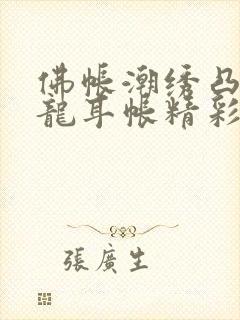 佛帳潮绣凸
龍耳帳精彩
張廣生